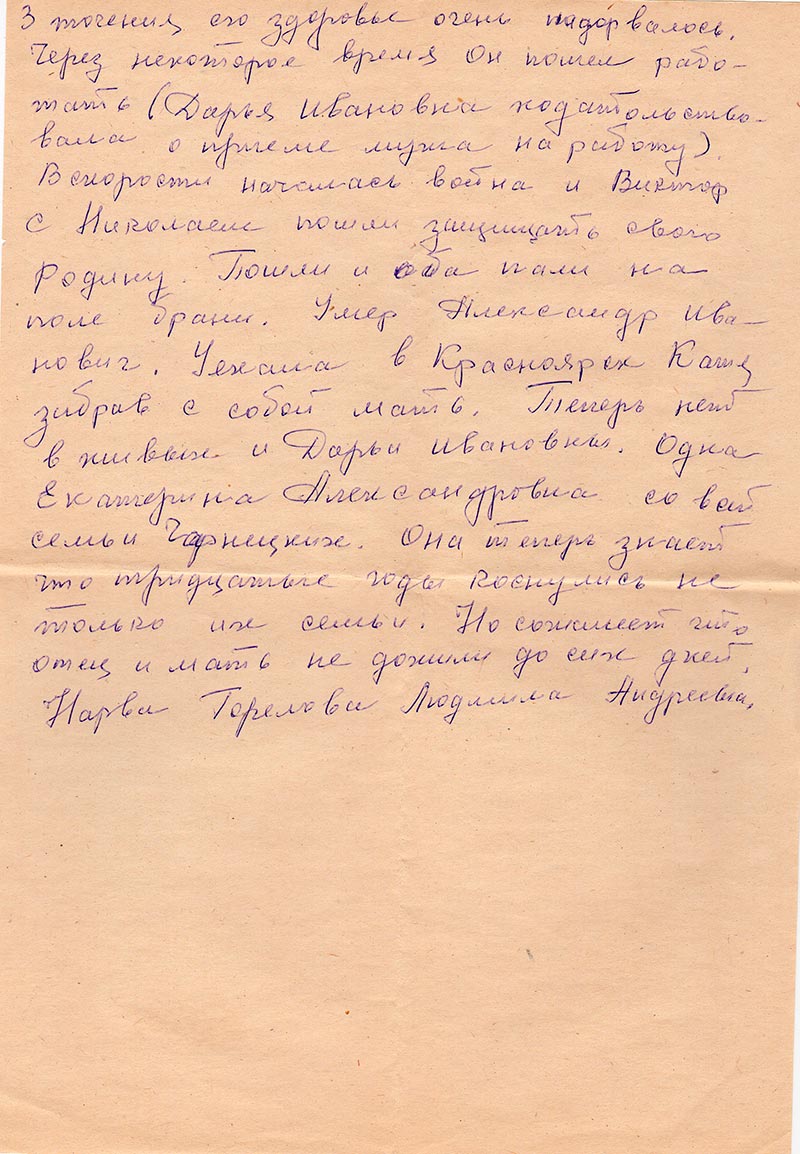 З точения его здоровье очень подорвалось.
Через некоторое время Он пошел рабо-
тать (Дарья Ивановна ходатольство-
вала о приеме мужа на работу).
Вскорости началась война и Виктор
с Николаем пошли защищать свою
Родину. Пошли и оба пали на
поле брани. Умер Александр Ива-
нович. Уехала в Красноярск Катя
забрав с собой мать. Теперь нет
в живых и Дарьи Ивановны. Одна
Екатерина Александровна со всей
семьи Чарнецких. Она теперь знает
что тридцатые годы коснулись не
только их семьи. Но сожилеет что
отец и мать не дожили до сих дней.
Нарва Горелова Людмила Андреевна.